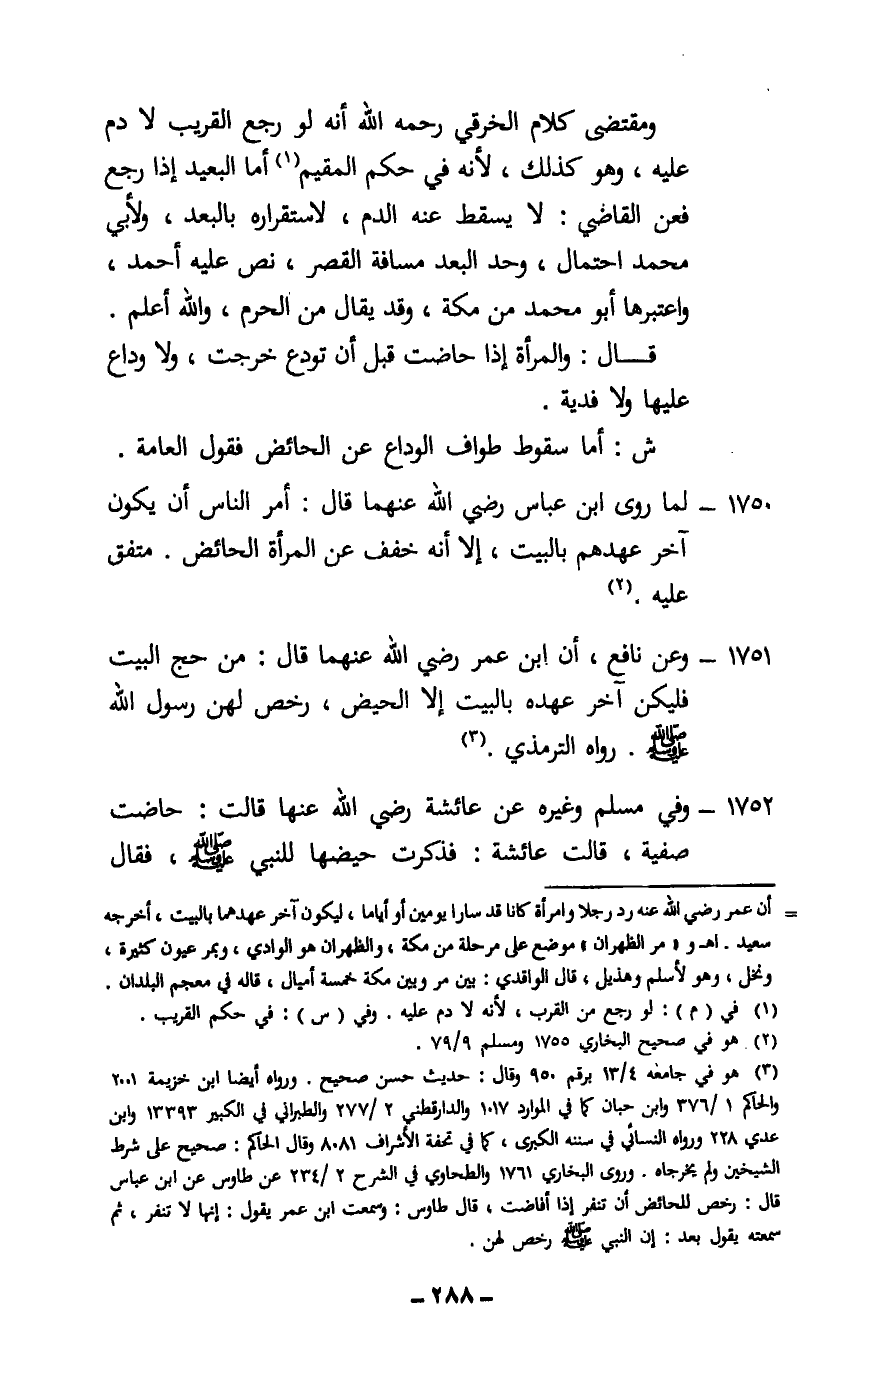 ومقتضى كلام الخرقي رحمه الله أنه لو رجع القريب لا دم
عليه ، وهو كذلك ، لأنه في حكم المقيم(١) أما البعيد إذا رجع
فعن القاضي : لا يسقط عنه الدم ، لاستقراره بالبعد ، ولأبي
محمد احتمال ، وحد البعد مسافة القصر ، نص عليه أحمد ،
واعتبرها أبو محمد من مكة ، وقد يقال من الحرم ، والله أعلم .
قــال : والمرأة إذا حاضت قبل أن تودع خرجت ، ولا وداع
عليها ولا فدية .
ش : أما سقوط طواف الوداع عن الحائض فقول العامة .
١٧٥٠ – لما روى ابن عباس رضي الله عنهما قال : أمر الناس أن يكون
آخر عهدهم بالبيت ، إلا أنه خفف عن المرأة الحائض . متفق
عليه .(٢)
١٧٥١ – وعن نافع ، أن ابن عمر رضي الله عنهما قال : من حج البيت
فليكن آخر عهده بالبيت إلا الحيض ، رخص لهن رسول الله
ﷺ . رواه الترمذي .(٣)
١٧٥٢ – وفي مسلم وغيره عن عائشة رضي الله عنها قالت : حاضت
صفية ، قالت عائشة : فذكرت حيضها للنبي ﷺ ، فقال
= أن عمر رضي الله عنه رد رجلا وامرأة كانا قد سارا يومين أو أياما ، ليكون آخر عهدهما بالبيت ، أخرجه
سعيد . اهـ و « مر الظهران » موضع على مرحلة من مكة ، والظهران هو الوادي ، وبمر عيون كثيرة ،
ونخل ، وهو لأسلم وهذيل ، قال الواقدي : بين مر وبين مكة خمسة أميال ، قاله في معجم البلدان .
(١) في ( م ) : لو رجع من القرب ، لأنه لا دم عليه . وفي ( س ) : في حكم القريب .
(٢) هو في صحيح البخاري ١٧٥٥ ومسلم ٧٩/٩ .
(٣) هو في جامعه ١٣/٤ برقم ٩٥٠ وقال : حديث حسن صحيح . ورواه أيضا ابن خزيمة ٣٠٠١
والحاكم ١ /٣٧٦ وابن حبان كما في الموارد ١٠١٧ والدارقطني ٢ /٢٧٧ والطبراني في الكبير ١٣٣٩٣ وابن
عدي ٢٢٨ ورواه النسائي في سننه الكبرى ، كما في تحفة الأشراف ٨٠٨١ وقال الحاكم : صحيح على شرط
الشيخين ولم يخرجاه . وروى البخاري ١٧٦١ والطحاوي في الشرح ٢ /٢٣٤ عن طاوس عن ابن عباس
قال : رخص للحائض أن تنفر إذا أفاضت ، قال طاوس : وسمعت ابن عمر يقول : إنها لا تنفر ، ثم
سمعته يقول بعد : إن النبي ﷺ رخص لهن .
– ٢٨٨ –